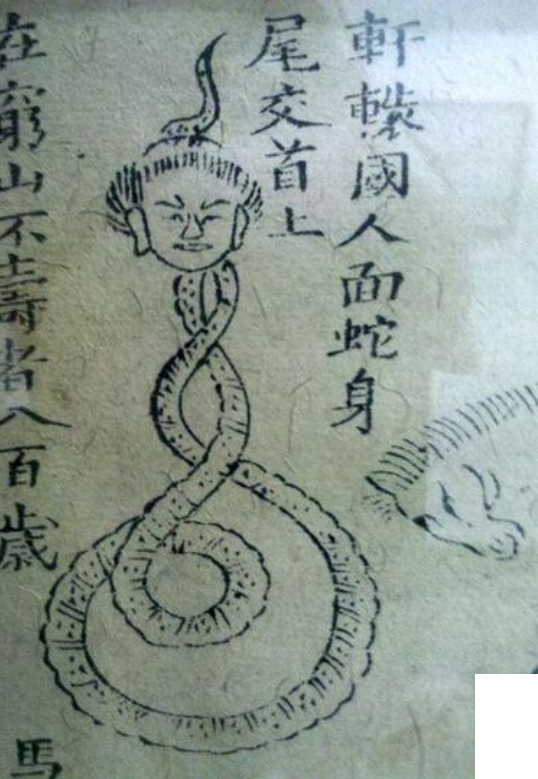 軒轅國人面蛇身
尾交首上
在窮山不壽者八百歲
馬